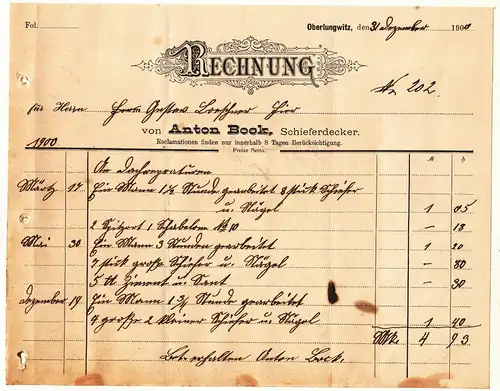 Fol.
Oberlungwitz, den 31 Dezember 1900
RECHNUNG
No 202.
für Herrn Herrn Gustav Loeschner Hier
von Anton Bock, Schieferdecker.
1900 Reclamationen finden nur innerhalb 8 Tagen Berücksichtigung.
Preise Netto.
An Dachreparaturen
März 17 Ein Mann 1½ Stunde gearbeitet 8 stück Schiefer
u. Nägel 1 05
2 1 No 10 – 18
Mai 30 Ein Mann 3 Stunden gearbeitet 1 20
stück große Schiefer u. Nägel – 80
5 Ziment u. Sant – 30
Dezember 19 Ein Mann 1 Stunde gearbeitet
4 große 2 kleiner Schiefer u. Nägel 1 40
Mk. 4 93
erhalten Anton Bock.